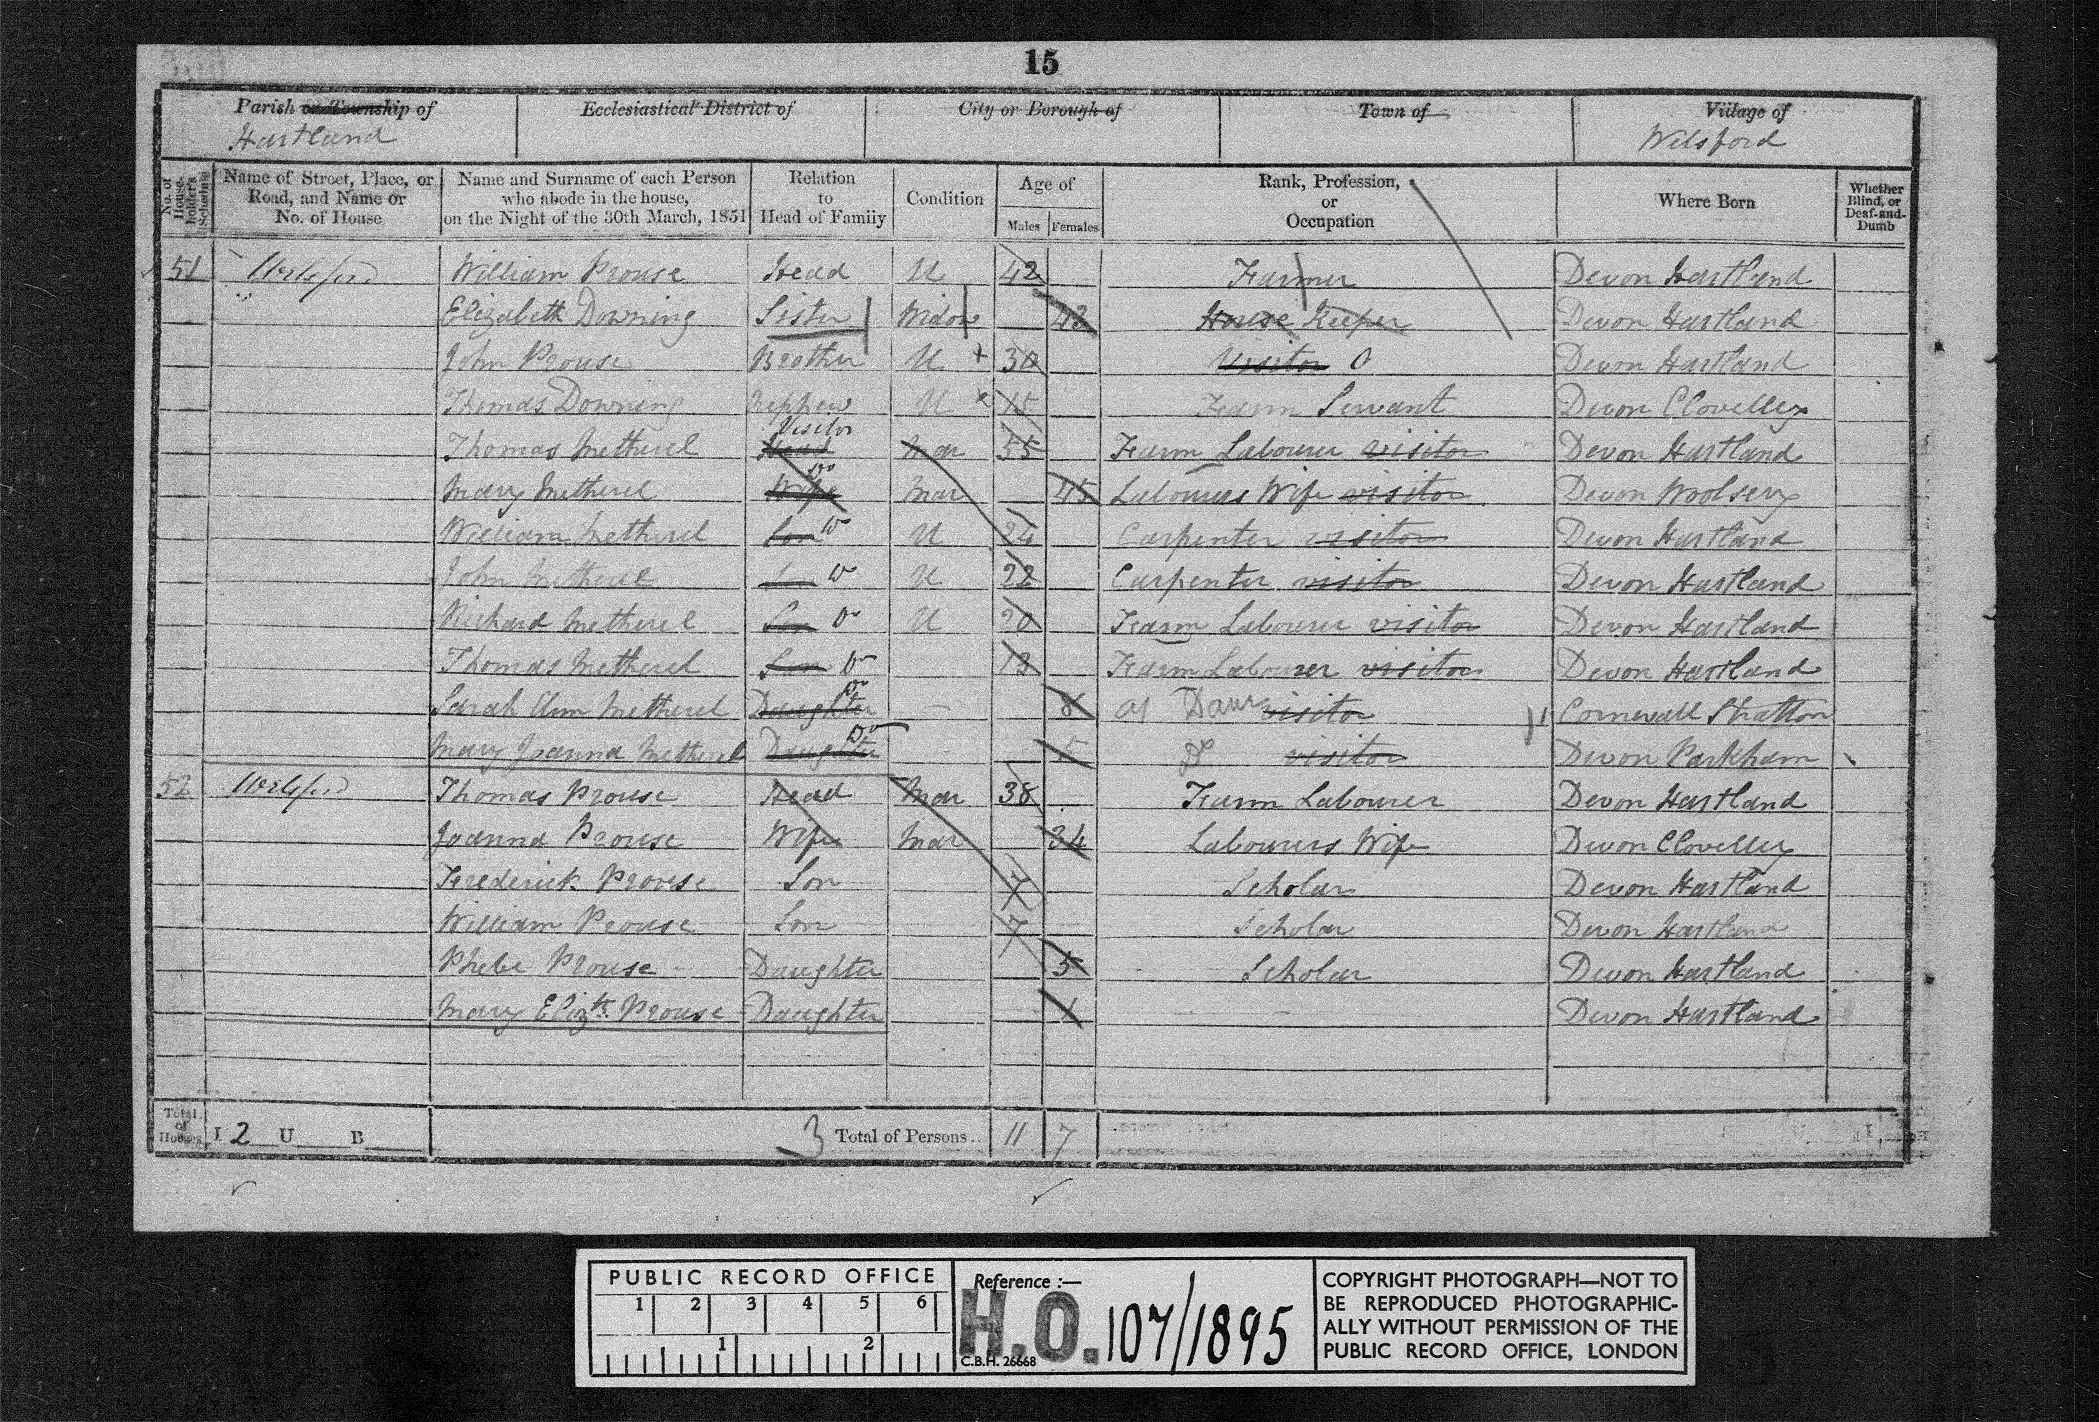 15
Parish or Township of Ecclesiastical District of City or Borough of Town of Village of
Hartland Wilsford
No. of House-holder's Schedule Name of Street, Place, or Road, and Name or No. of House Name and Surname of each Person who abode in the house, on the Night of the 30th March, 1851 Relation to Head of Family Condition Age of Males Females Rank, Profession, or Occupation Where Born Whether Blind, or Deaf-and-Dumb
51 William Prouse Head U 42 Farmer Devon Hartland
Elizabeth Downing Sister Widow 43 House Keeper Devon Hartland
John Prouse Brother U 30 Visitor Devon Hartland
Thomas Downing Neppew U 15 Farm Servant Devon Clovelley
Thomas Metherel Head Visitor Mar 55 Farm Labourer visitor Devon Hartland
Mary Metherel Wife Do Mar 45 Labourers Wife visitor Devon Woolsery
William Metherel Son Do U 24 Carpenter visitor Devon Hartland
John Metherel Son Do U 22 Carpenter visitor Devon Hartland
Richard Metherel Son Do U 20 Farm Labourer visitor Devon Hartland
Thomas Metherel Son Do 13 Farm Labourer visitor Devon Hartland
Sarah Ann Metherel Daughter Do 8 visitor Cornwall Stratton
Mary Joanna Metherel Daughter Do 5 visitor Devon Parkham
52 Thomas Prouse Head Mar 38 Farm Labourer Devon Hartland
Joanna Prouse Wife Mar 34 Labourers Wife Devon Clovelley
Frederick Prouse Son Scholar Devon Hartland
William Prouse Son 7 Scholar Devon Hartland
Phebe Prouse Daughter 5 Scholar Devon Hartland
Mary Elizth. Prouse Daughter 1 Devon Hartland
Total of Houses I 2 U B 3 Total of Persons.. 11 7
PUBLIC RECORD OFFICE
1 2 3 4 5 6
1 2
Reference :—
H.O. 107/1895
C.B.H. 26668
COPYRIGHT PHOTOGRAPH—NOT TO
BE REPRODUCED PHOTOGRAPHIC-
ALLY WITHOUT PERMISSION OF THE
PUBLIC RECORD OFFICE, LONDON